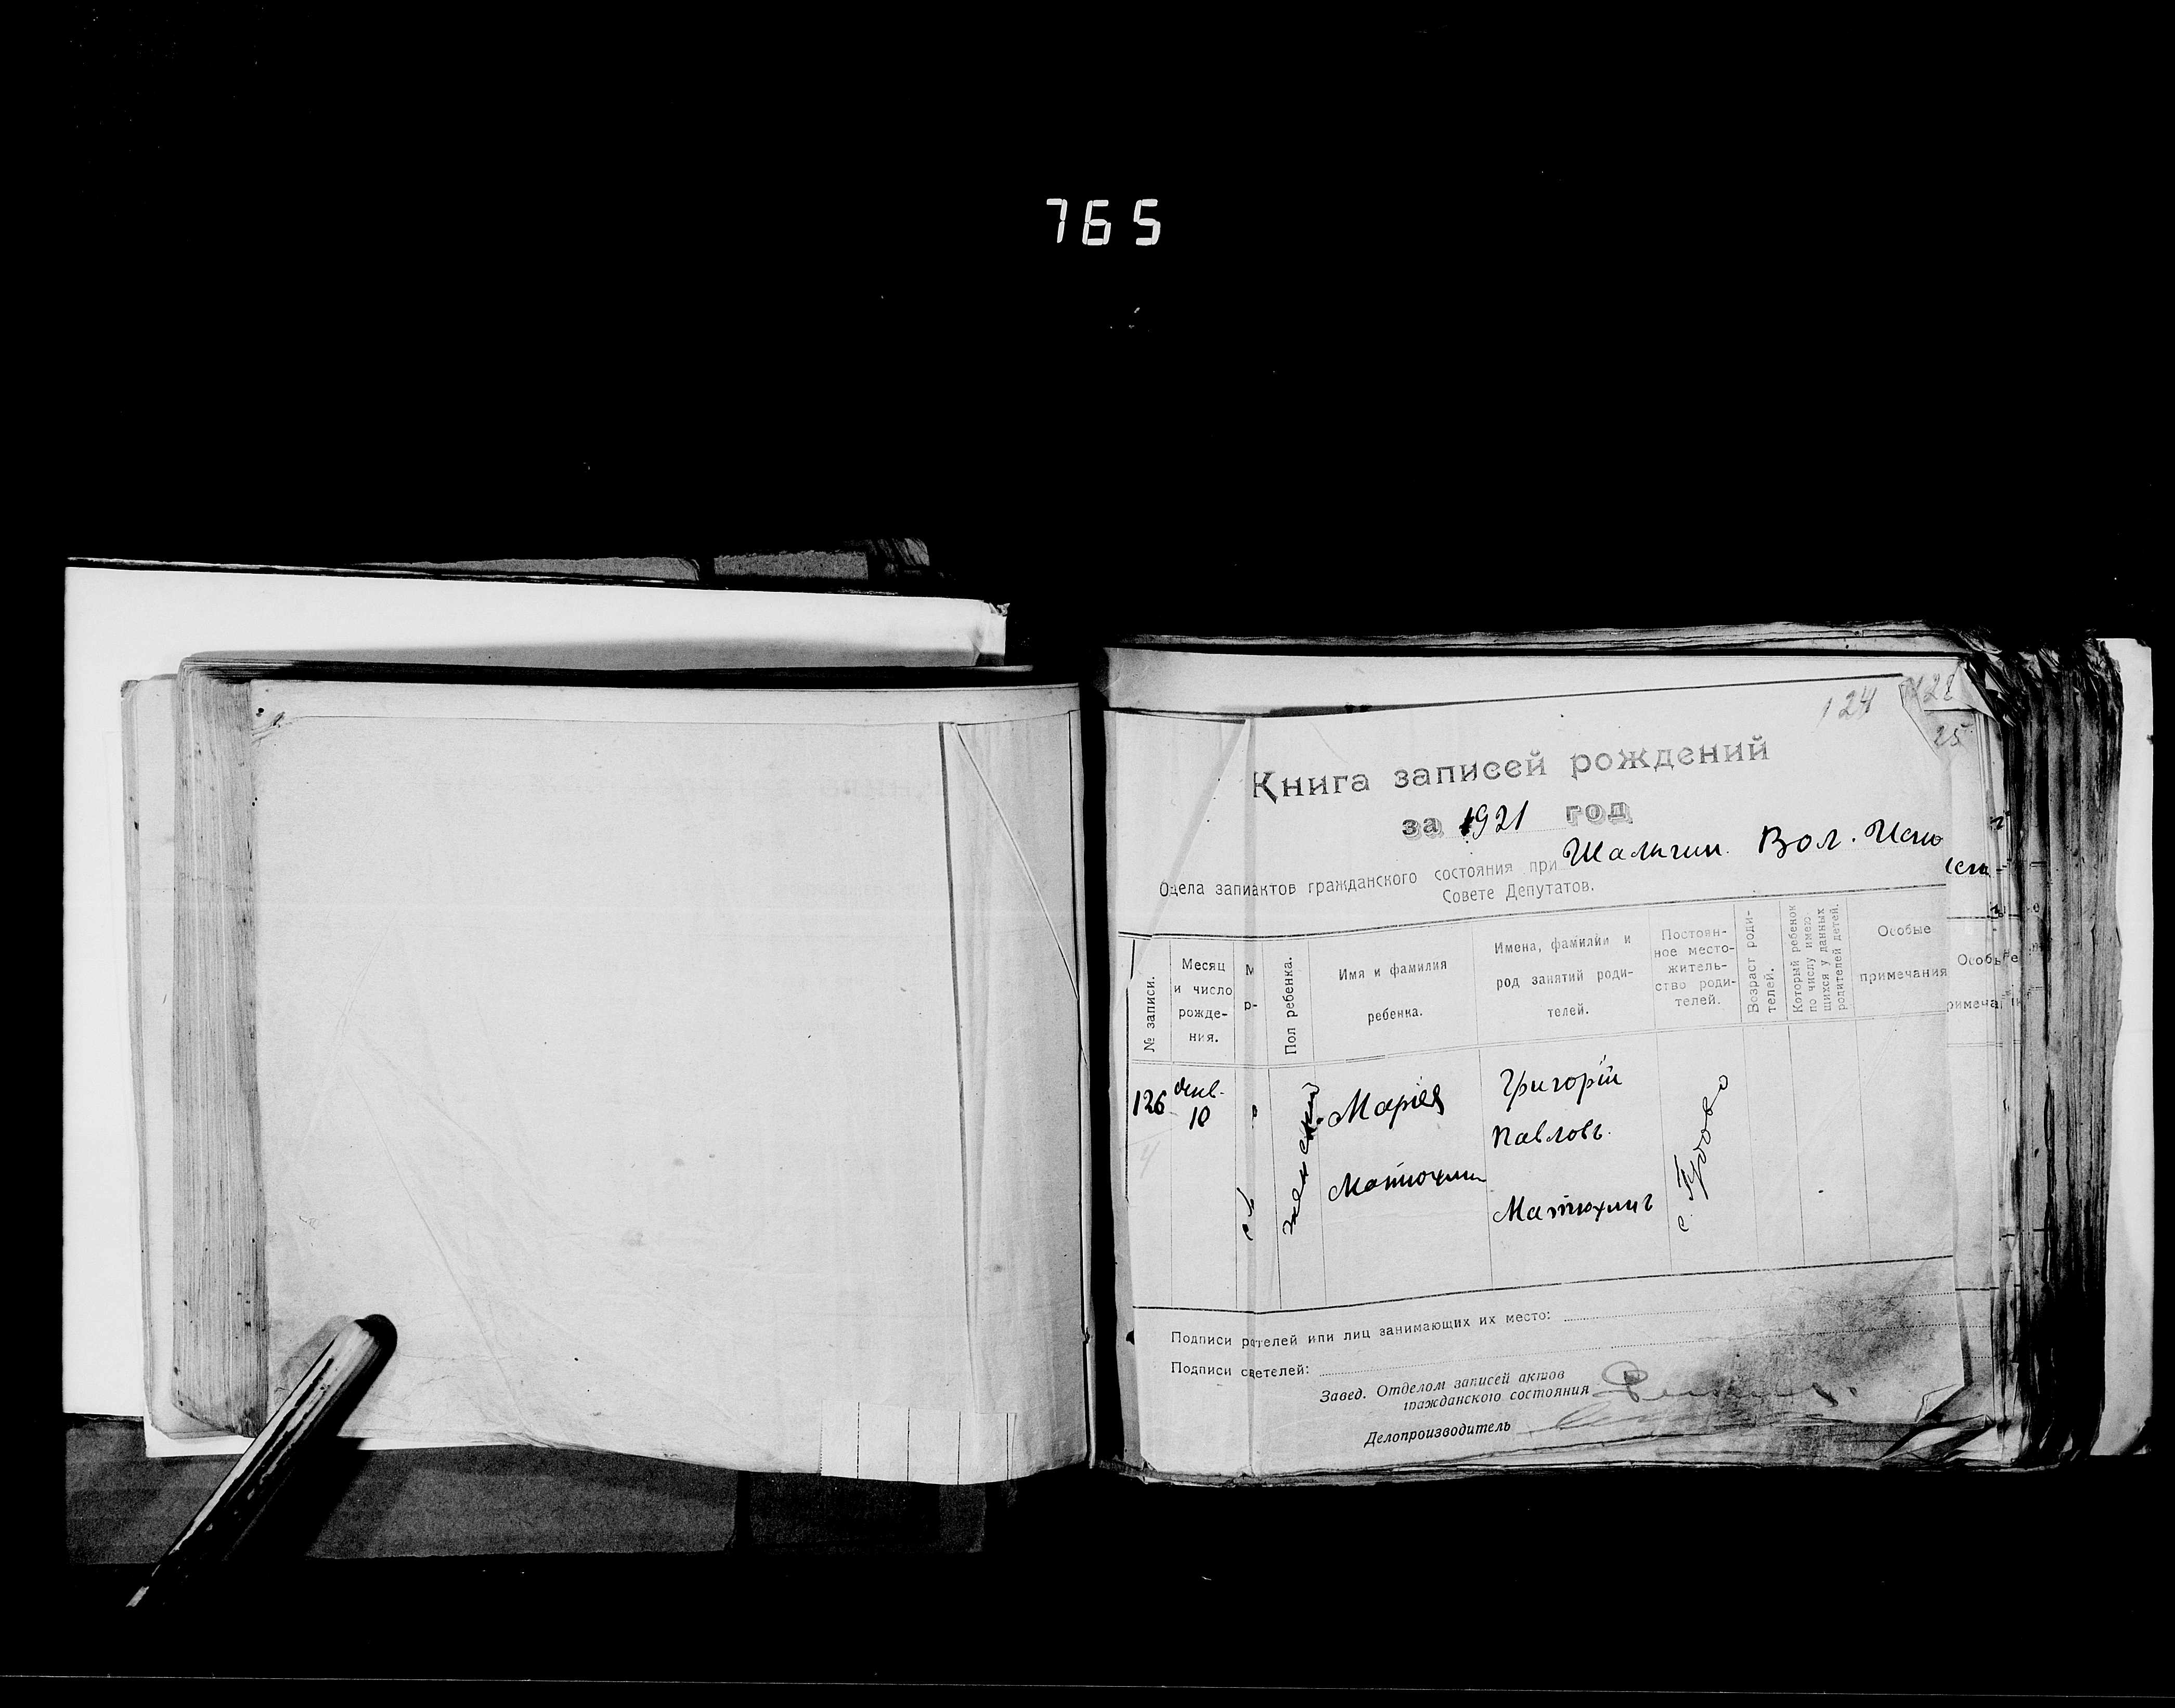 765
124
25
Книга записей рождений
за 1921 год
Одела запиактов гражданского состояния при Шалыгин. Вол. Испо
Совете Депутатов.
№ записи.
Месяц и число рожде-ния.
М
р-
Пол ребенка.
Имя и фамилия
ребенка.
Имена, фамилии и
род занятий роди-
телей.
Постоян-
ное место-
житель-
ство роди-
телей.
Возраст роди-
телей.
Который ребенок
по числу имею-
щихся у данных
родителей детей.
Особые
примечания
126
10
женский
Марія
Григорій
Павловъ.
Матюхинъ
Подписи рателей или лиц занимающих их место:
Подписи светелей:
Завед. Отделом записей актов
гражданского состояния
Делопроизводитель